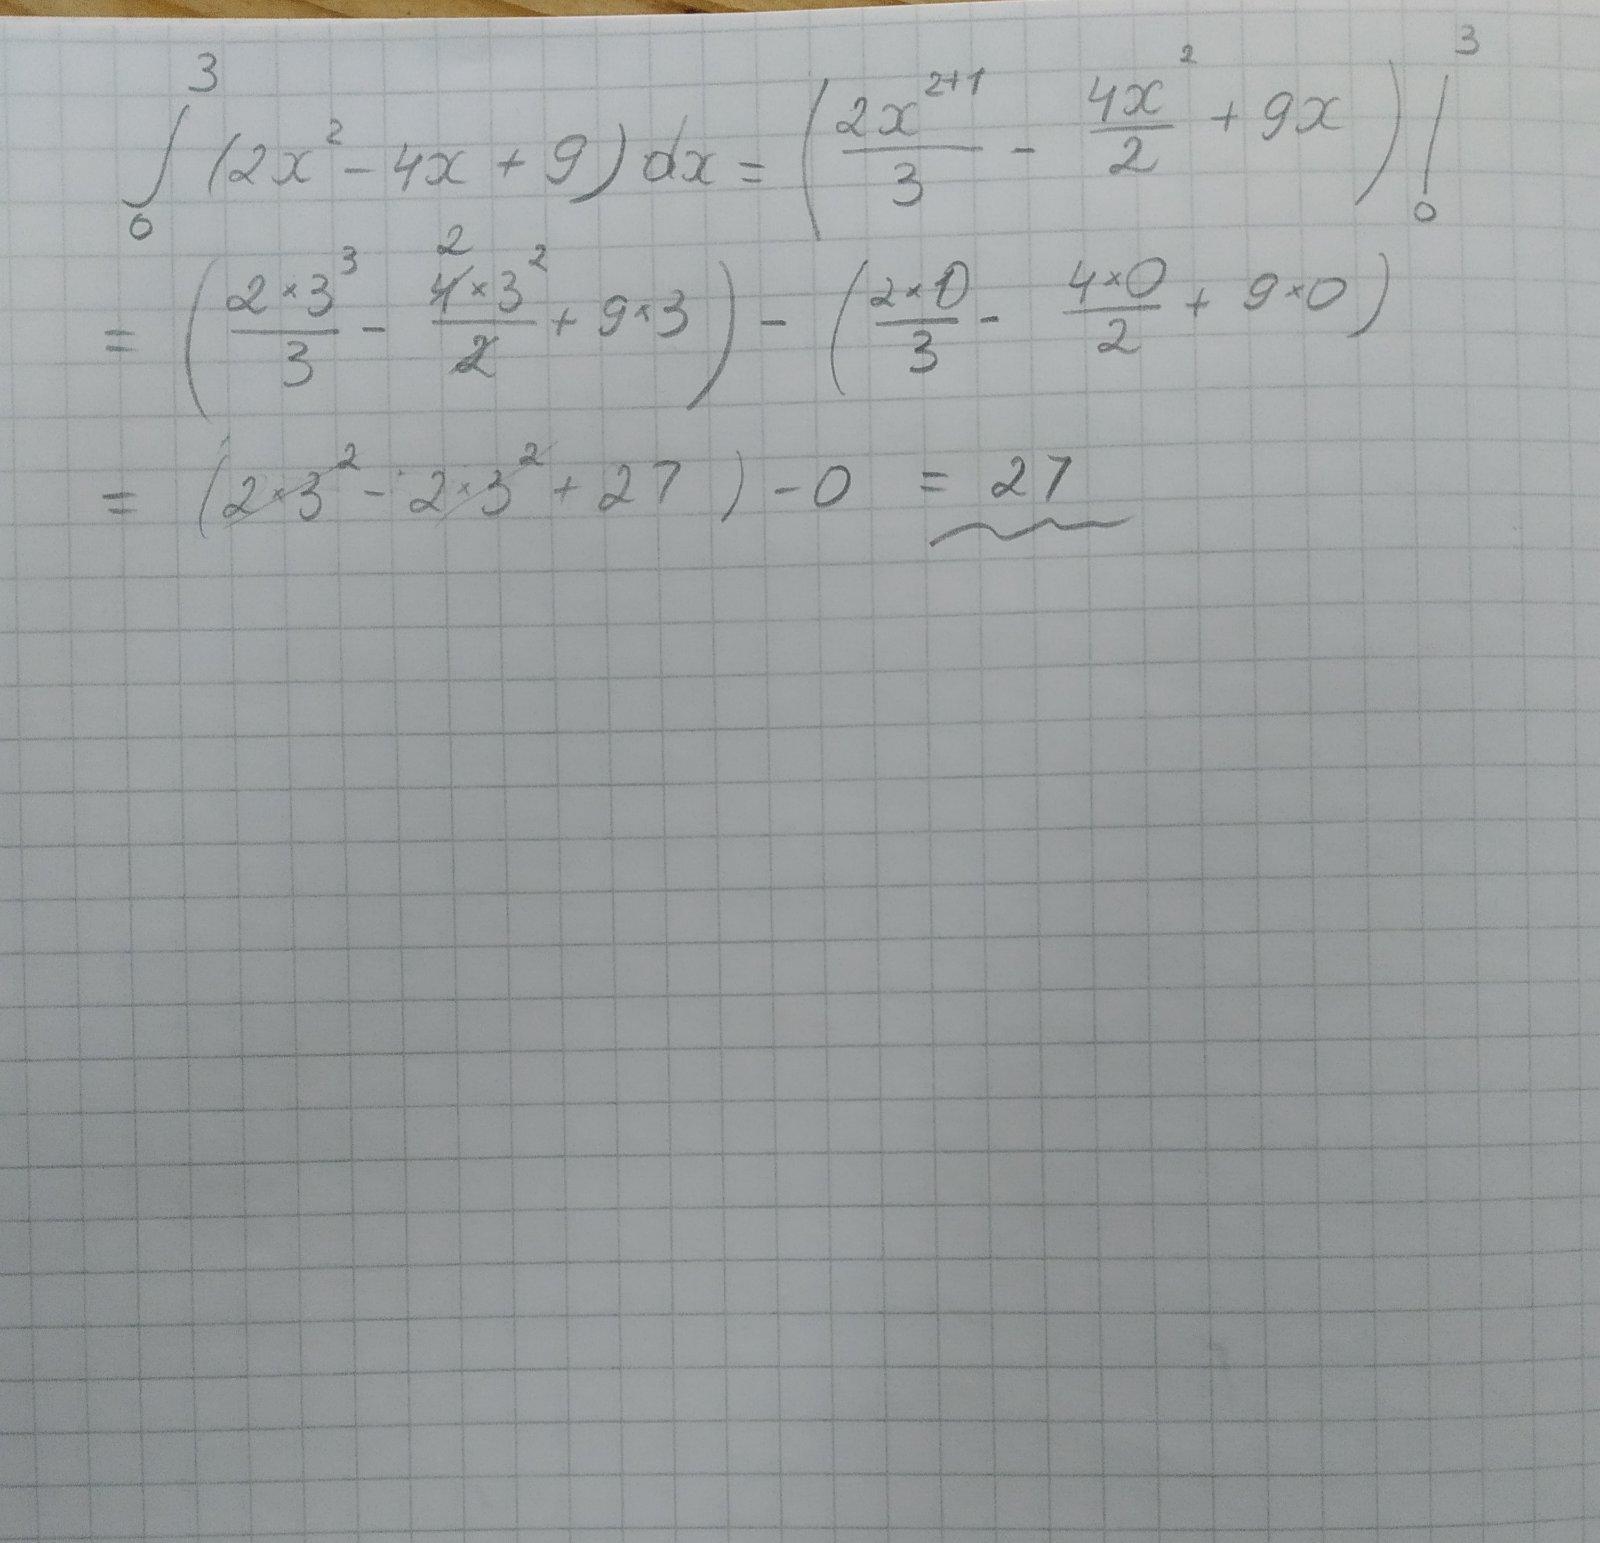 ∫₀³ (2x² - 4x + 9) dx = (2x²⁺¹/3 - 4x²/2 + 9x) |₀³
= (2×3³/3 - 4×3²/2 2 + 9×3) - (2×0/3 - 4×0/2 + 9×0)
= (2×3² - 2×3² + 27) - 0 = 27